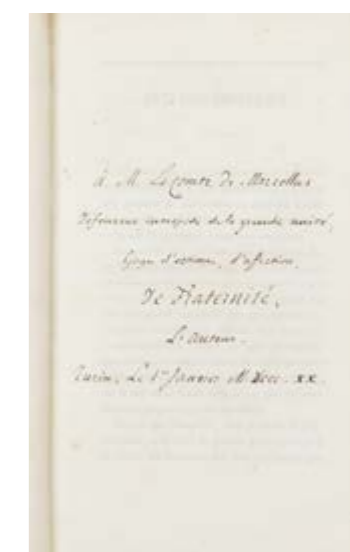 À M. Le Comte de Marcellus
Défenseur intrépide de la grande unité,
Gage d'estime, d'affection,
De Fraternité,
L'auteur.
Turin, Le 1er Janvier M. DCCC. XX.